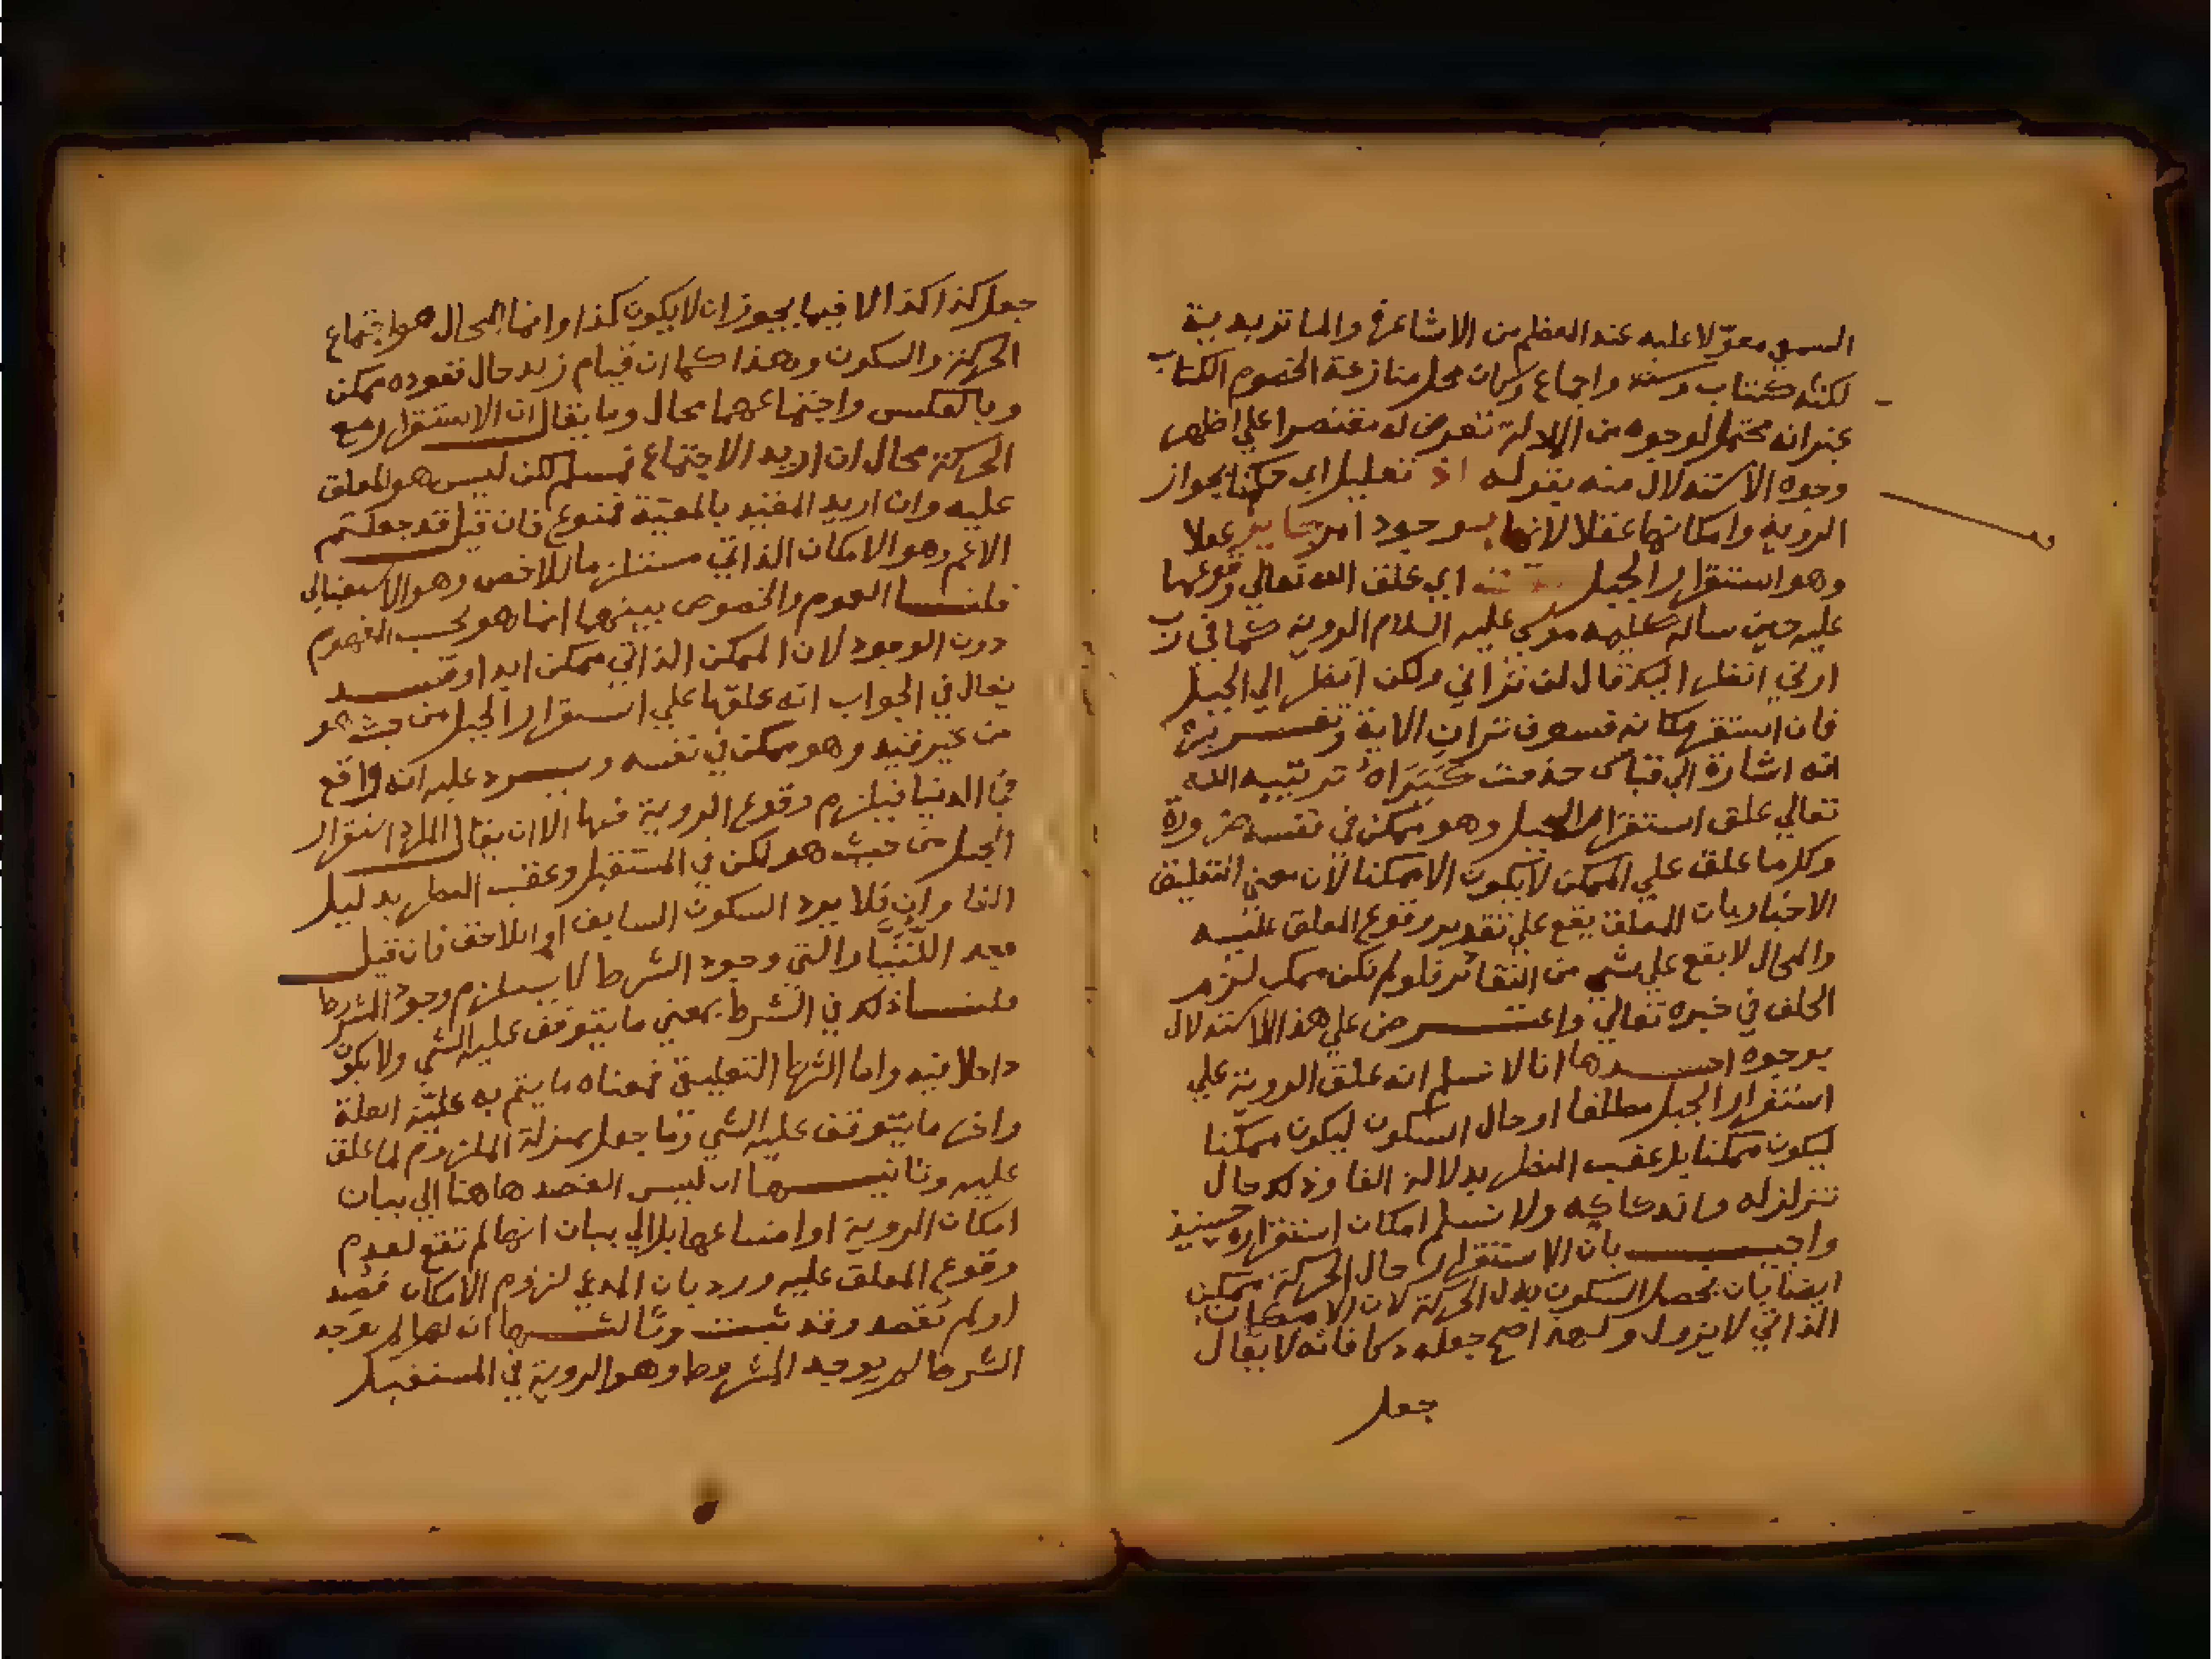 السمعي معوّلا عليه عند العظم من الاشاعرة والماتريدية
لكنه كتاب وسنة واجماع وكان محل منازعة الخصوم الكتاب
غير انه محتمل لوجوه من الادلة تعرض له مقتصرا علي اظهر
وجوه الاستدلال منه بقوله اذ تعليل اي حكمنا بجواز
الروية وامكانها عقلا لانها بوجود امر جايز عقلا
وهو استقرار الجبل علقت اي علق الله تعالي وقوعها
عليه حين ساله كليمه موسي عليه السلام الروية كما في رب
ارني انظر اليك قال لن تراني ولكن انظر الي الجبل
فان استقر مكانه فسوف تراني الاية وتقرير
انه اشارة الي قياس حذفت كبراه ترتيبه الله
تعالي علق استقرار الجبل وهو ممكن في نفسه ضرورة
وكل ما علق علي الممكن لا يكون الا ممكنا لان معني التعليق
الاخبار بان المعلق يقع علي تقدير وقوع المعلق عليه
والمحال لا يقع علي شي من التقادير فلو لم تكن ممكن لزم
الخلف في خبره تعالي واعترض علي هذا الاستدلال
بوجوه احدها انا لا نسلم انه علق الروية علي
استقرار الجبل مطلقا او حال السكون ليكون ممكنا
ليكون ممكنا بل عقيب النظر بدلالة الفا وذلك حال
تزلزله واندكاكه ولا نسلم امكان استقراره حينيذ
واجيب بان الاستقرار حال الحركة ممكن
ايضا بان يحصل السكون بدل الحركة لان الامكان
الذاتي لا يزول ولهذا صح جعله دكا فانه لا يقال
جعل
جعل كذا كذا الا فيما يجوز ان لا يكون كذا وانما المحال هو اجتماع
الحركة والسكون وهذا كما ان قيام زيد حال قعوده ممكن
وبالعكس واجتماعهما محال وما يقال ان الاستقرار مع
الحركة محال ان اريد الاجتماع فمسلم لكن ليس هو المعلق
عليه وان اريد المقيد بالمعية فمنوع فان قيل قد جعلتم
الاعم وهو الامكان الذاتي مستلزما للاخص وهو الاستقبالي
قلنا العموم والخصوص بينهما انما هو بحسب المفهوم
دون الوجود لان الممكن الذاتي ممكن ابدا وقد
يقال في الجواب انه علقها علي استقرار الجبل من حيث هو
من غير قيد وهو ممكن في نفسه ويرد عليه انه واقع
في الدنيا فيلزم وقوع الروية فيها الا ان يقال المراد استقرار
الجبل من حيث هو لكن في المستقبل وعقب النظر بدليل
الفا وان فلا يرد السكون السابق او اللاحق فان قيل
وجود الشرط لا يستلزم وجود المشروط
قلنا ذلك في الشرط بمعني ما يتوقف عليه الشي ولا يكون
داخلا فيه واما الشرط التعليقي فمعناه ما يتم به علية العلة
واخر ما يتوقف عليه الشي وما جعل بمنزلة الملزوم لما علق
عليه وثانيها ان ليس القصد هاهنا الي بيان
امكان الروية او امتناعها بل الي بيان انها لم تقع لعدم
وقوع المعلق عليه ورد بان المدعي لزوم الامكان قصد
او لم تقصد وقد ثبت وثالثها انه لما لم يوجد
الشرط لم يوجد المشروط وهو الروية في المستقبل